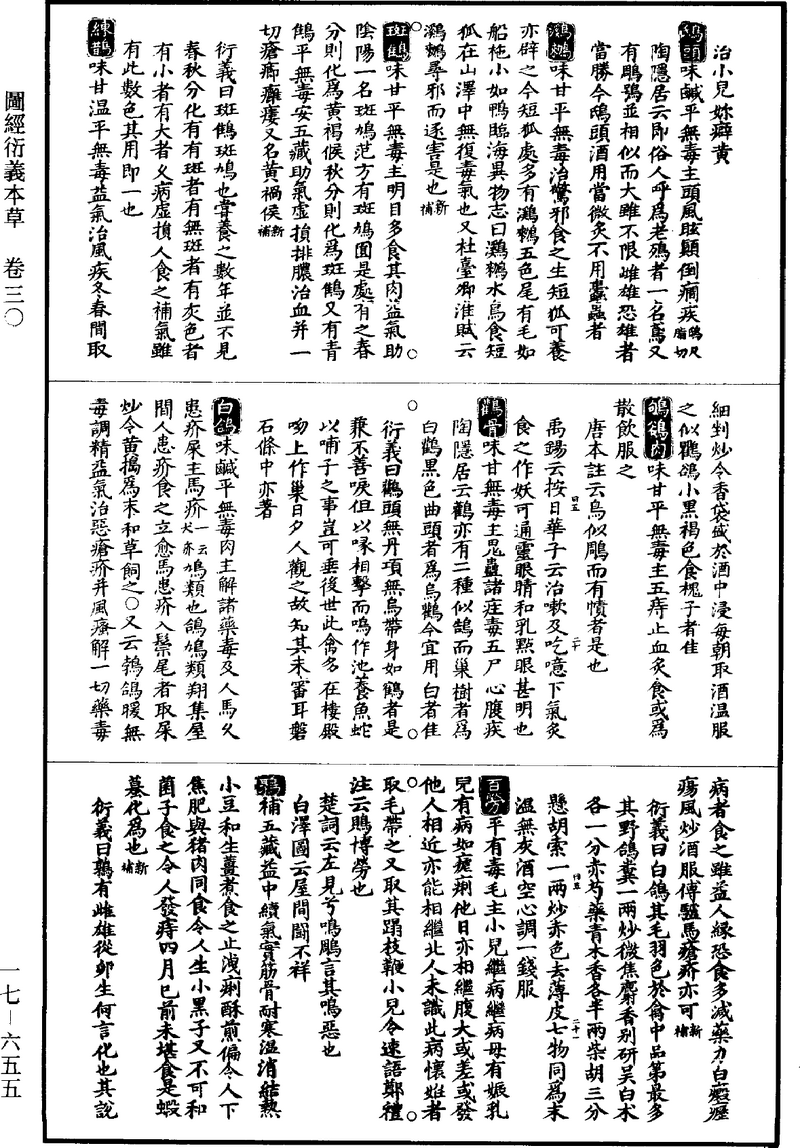 治小兒㚷癖黃
鴟頭味鹹平無毒主頭風眩顛倒癇疾鴟尺脂切
陶隱居云即俗人呼為老鴉者一名鳶又
有鵰鶚並相似而大雖不限雌雄恐雄者
當勝今鴟頭酒用當微炙不用蠹蟲者
鸂鶒味甘平無毒治驚邪食之生短狐可養
亦辟之今短狐處多有鸂鶒五色尾有毛如
船柂小如鴨臨海異物志曰鸂鶒水鳥食短
狐在山澤中無復毒氣也又杜臺卿淮賦云
鸂鶒尋邪而逐害是也新補
斑鶉味甘平無毒主明目多食其肉益氣助
陰陽一名斑鳩范方有斑鳩圓是處有之春
分則化為黃褐候秋分則化為斑鶉又有青
鶉平無毒安五藏助氣虛損排膿治血并一
切瘡癤癰瘻又名黃褐侯新補
衍義曰斑鶉斑鳩也嘗養之數年並不見
春秋分化有有斑者有無斑者有灰色者
有小者有大者久病虛損人食之補氣雖
有此數色其用即一也
練鵲味甘溫平無毒益氣治風疾冬春間取
細剉炒令香袋盛於酒中浸每朝取酒溫服
之似鸜鵒小黑褐色食槐子者佳
鴝鵒肉味甘平無毒主五痔止血炙食或為
散飲服之
唐本註云鳥似鵙而有幘者是也
禹錫云按日華子云治嗽及吃噫下氣炙
食之作妖可通靈眼睛和乳點眼甚明也
鸛骨味甘無毒主鬼蠱諸疰毒五尸心腹疾
陶隱居云鸛亦有二種似鵠而巢樹者為
白鸛黑色曲頭者為烏鸛今宜用白者佳
衍義曰鸛頭無丹項無烏帶身如鶴者是
兼不善唳但以喙相擊而鳴作池養魚蛇
以哺子之事豈可垂後世此禽多在樓殿
吻上作巢日夕人觀之故知其未審耳礬
石條中亦著
白鴿味鹹平無毒肉主解諸藥毒及人馬久
患疥屎主馬疥一云犬亦鳩類也鴿鳩類翔集屋
間人患疥食之立愈馬患疥入鬃尾者取屎
炒令黃搗為末和草飼之○又云鵓鴿暖無
毒調精益氣治惡瘡疥并風瘙解一切藥毒
病者食之雖益人緣恐食多減藥力白癜癧
瘍風炒酒服傅驢馬瘡疥亦可新補
衍義曰白鴿其毛羽色於禽中品第最多
其野鴿糞一兩炒微焦麝香別研吳白朮
各一分赤芍藥青木香各半兩柴胡三分
懸胡索一兩炒赤色去薄皮七物同為末
溫無灰酒空心調一錢服
百勞平有毒毛主小兒繼病繼病母有娠乳
兒有病如瘧痢他日亦相繼腹大或差或發
他人相近亦能相繼北人未識此病懷妊者
取毛帶之又取其蹋枝鞭小兒令速語鄭禮
注云鵙博勞也
楚詞云左見兮鳴鵙言其鳴惡也
白澤圖云屋間鬪不祥
鶉補五藏益中續氣實筋骨耐寒溫消結熱
小豆和生薑煮食之止洩痢酥煎偏令人下
焦肥與猪肉同食令人生小黑子又不可和
菌子食之令人發痔四月已前未堪食是蝦
蟇化為也新補
衍義曰鶉有雌雄從卵生何言化也其說
圖經衍義本草 卷三〇
一七－六五五
四五
二十
十五
二十一